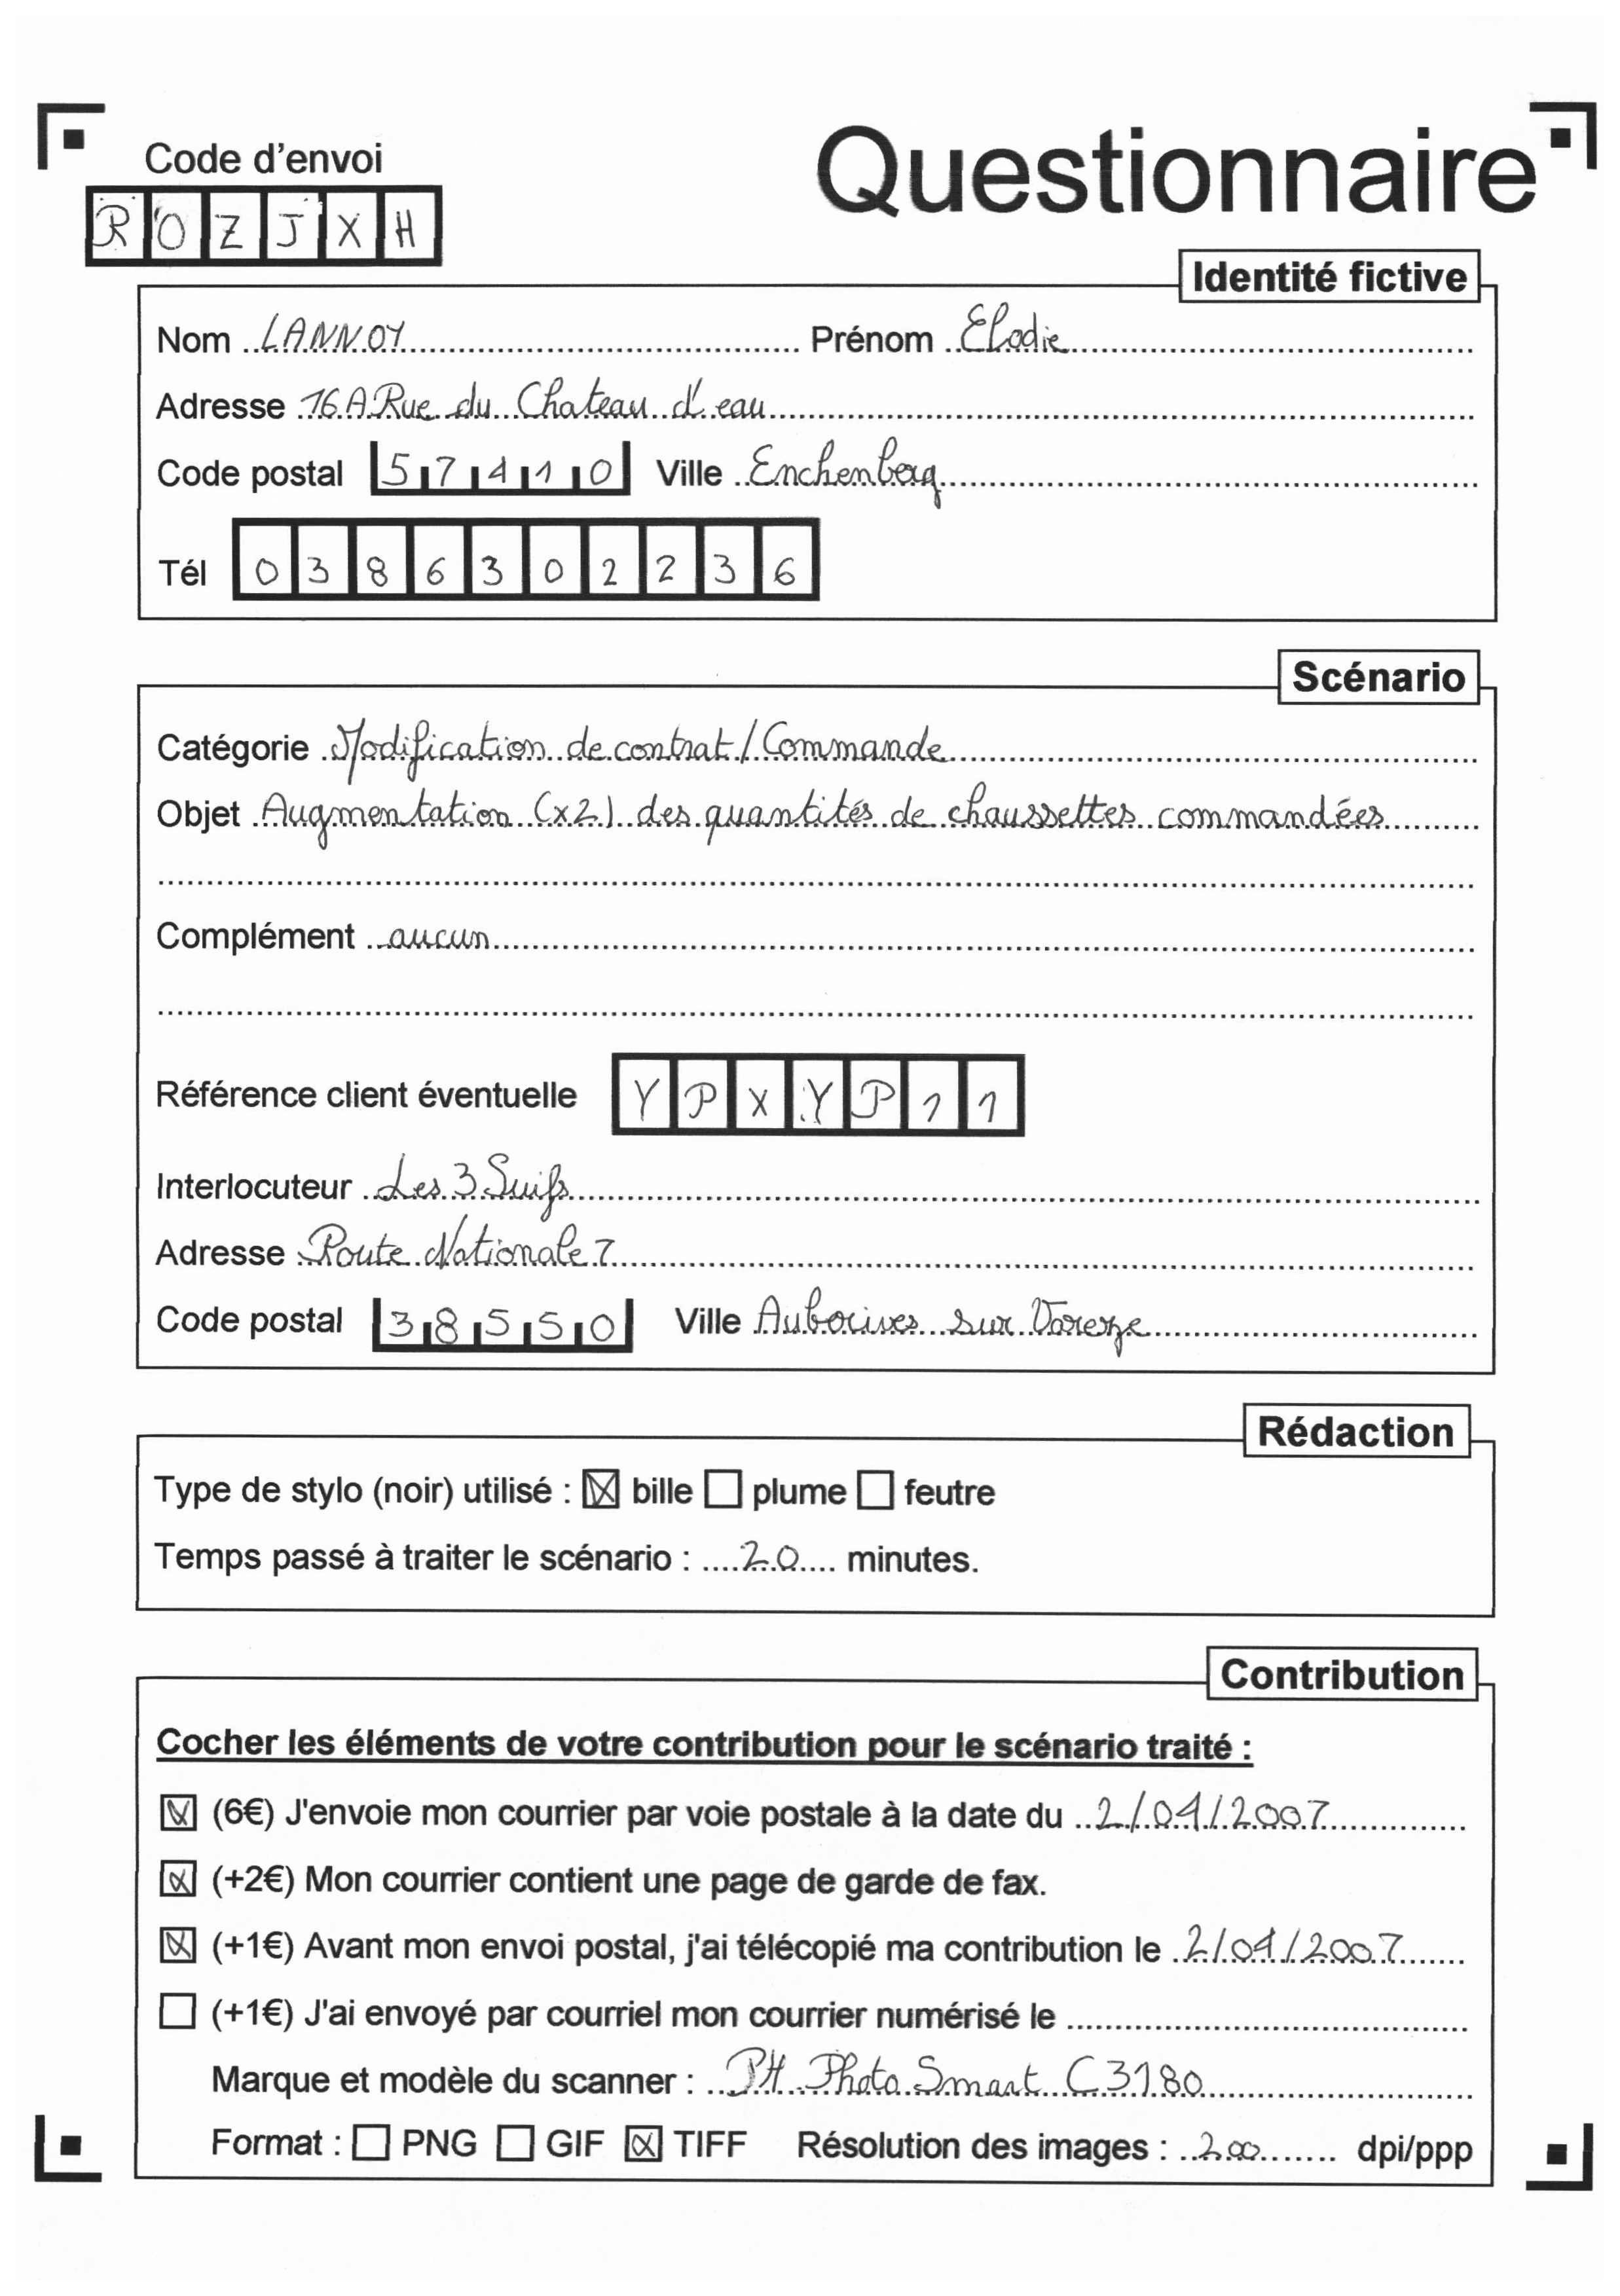 Code d'envoi
Questionnaire
R O Z J X H
Identité fictive
Nom LANNOY Prénom Elodie
Adresse 16A Rue du Chateau d'eau
Code postal 57410 Ville Enchenberg
Tél 0386302236
Scénario
Catégorie Modification de contrat / Commande
Objet Augmentation (x2) des quantités de chaussettes commandées
Complément aucun
Référence client éventuelle YPXYP11
Interlocuteur Les 3 Suifs
Adresse Route Nationale 7
Code postal 38550 Ville Auborives sur Vareze
Rédaction
Type de stylo (noir) utilisé : ☒ bille ☐ plume ☐ feutre
Temps passé à traiter le scénario : 20 minutes.
Contribution
Cocher les éléments de votre contribution pour le scénario traité :
☒ (6€) J'envoie mon courrier par voie postale à la date du 2/01/2007
☒ (+2€) Mon courrier contient une page de garde de fax.
☒ (+1€) Avant mon envoi postal, j'ai télécopié ma contribution le 2/01/2007
☐ (+1€) J'ai envoyé par courriel mon courrier numérisé le
Marque et modèle du scanner : PH Photo Smart C3180
Format : ☐ PNG ☐ GIF ☒ TIFF Résolution des images : 200 dpi/ppp